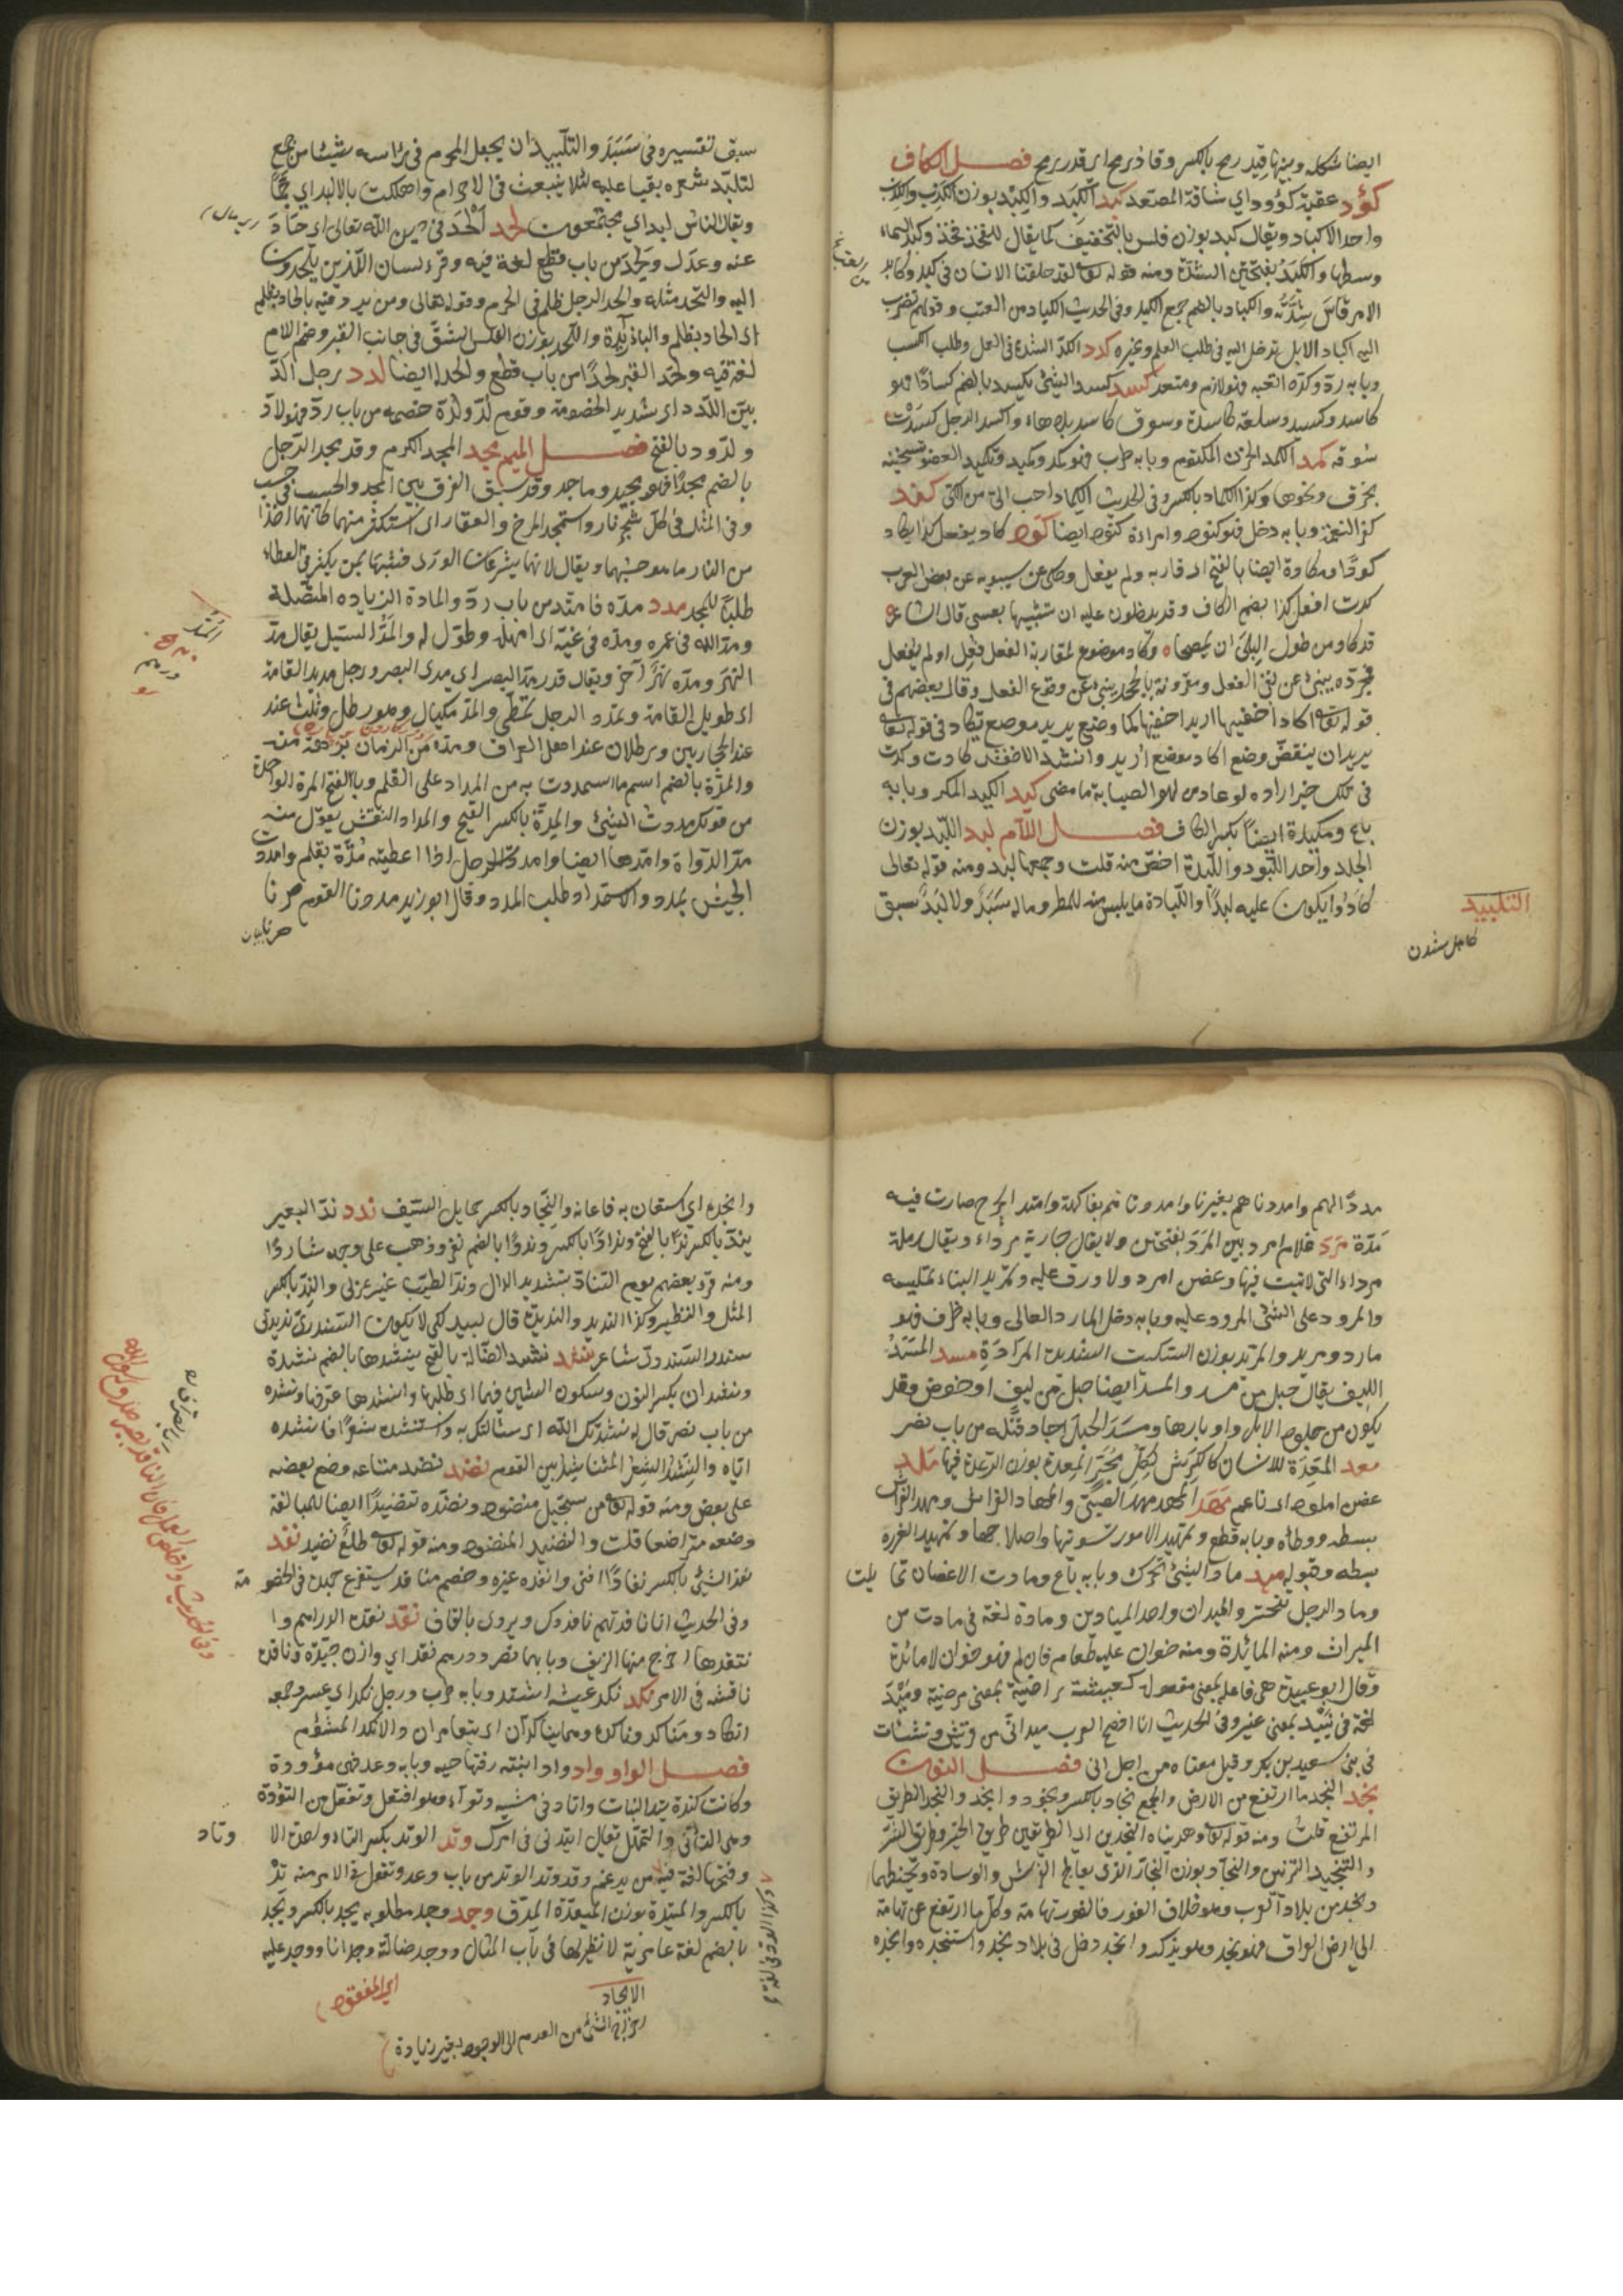 ايضا شكله وبينهما قيد رمح بالكسر وقاد رمح اى قدر رمح فصل الكاف
كؤد عقبة كؤود اي شاقة المصعد كبد الكبد والكبد بوزن الكذب والكذب
واحد الاكباد ويقال كبد بوزن فلس بالتخفيف كما يقال للفخذ فخذ وكبد السماء
وسطها والكبد بفتحتين الشدة ومنه قوله تعالى لقد خلقنا الانسان فى كبد وكابد
الامر قاسى شدته والكباد بالضم وجع الكبد وفى الحديث الكباد من العب وقولهم تضرب
اليه اكباد الابل تدخل اليه فى طلب العلم وغيره كدد الكد الشدة فى العمل وطلب الكسب
وبابه رد وكده اتعبه فهو لازم ومتعد كسد كسد الشئ يكسد بالضم كسادا فهو
كاسد وكسيد وسلعة كاسدة وسوق كاسد بلا هاء واكسد الرجل كسدت
سوقه كمد الكمد الحزن المكتوم وبابه طرب فهو كمد وكميد وتكميد العضو تسخينه
بخرق ونحوها وكذا الكماد بالكسر وفى الحديث الكماد احب الى من الكى كند
كفر النعمة وبابه دخل فهو كنود وامراة كنود ايضا كود كاد يفعل كذا يكاد
كودا ومكادة ايضا بالفتح اى قاربه ولم يفعل وحكى عن سيبويه عن بعض العرب
كدت افعل كذا بضم الكاف وقد يدخلون عليه ان تشبيها بعسى قال الشاعر
قد كاد من طول البلى ان يمصحا وكاد موضوع لمقاربة الفعل فعل او لم يفعل
فمجرده ينبئ عن نفى الفعل ومقرونه بالجحد ينبئ عن وقوع الفعل وقال بعضهم فى
قوله تعالى اكاد اخفيها اريد اخفيها كما وضع يريد موضع يكاد فى قوله تعالى
يريد ان ينقض وضع اكاد موضع اريد وانشد الاخفش كادت وكدت
وتلك خير ارادة لو عاد من لهو الصبابة ما مضى كيد الكيد المكر وبابه
باع ومكيدة ايضا بكسر الكاف فصل اللام لبد اللبد بوزن
الجلد واحد اللبود واللبدة اخص منه قلت وجمعها لبد ومنه قوله تعالى
كادوا يكونون عليه لبدا واللبادة ما يلبس منه للمطر وماله سبد ولا لبد سبق
التلبيد
سبق تفسيره فى سبد والتلبيد ان يجعل المحرم فى رأسه شيئا من صمغ
لتلبد شعره بقيا عليه لئلا يشعث فى الاحرام واهلكت مالا لبدا اي جما
ويقال الناس لبد اي مجتمعون لحد الحد فى دين الله تعالى اى حاد
عنه وعدل ولحد من باب قطع لغة فيه وقرء لسان الذين يلحدون
اليه والتحد مثله والحد الرجل ظلم فى الحرم وقوله تعالى ومن يرد فيه بالحاد بظلم
اى الحادا بظلم والباء زائدة واللحد بوزن الفلس الشق فى جانب القبر وضم اللام
لغة فيه ولحد القبر لحدا من باب قطع ولحد له ايضا لدد رجل الد
بين اللدد اى شديد الخصومة وقوم لد ولده خصمه من باب رد فهو لاد
ولدود بالفتح فصل الميم مجد المجد الكرم وقد مجد الرجل
بالضم مجدا فهو مجيد وماجد وقد سبق الفرق بين المجد والحسب فى حسب
وفى المثل فى كل شجر نار واستمجد المرخ والعفار اى استكثر منها كانهما اخذا
من النار ما هو حسبهما ويقال لانهما يسرعان الورى فشبها بمن يكثر فى العطاء
طلبا للمجد مدد مده فامتد من باب رد والمادة الزيادة المتصلة
ومد الله فى عمره ومده فى غيه اى امهله وطول له والمد السيل يقال مد
النهر ومده نهر آخر ويقال قدر مد البصر اي مدى البصر ورجل مديد القامة
اى طويل القامة وتمدد الرجل تمطى والمد مكيال وهو رطل وثلث عند
عند الحجازيين ورطلان عند اهل العراق ومدة من الزمان برهة منه
والمدة بالضم اسم ما استمددت به من المداد على القلم وبالفتح المرة الواحدة
من قولك مددت الشئ والمدة بالكسر القيح والمداد النقش يقول منه
مد الدواة وامدها ايضا وامددت الرجل اذا اعطيته مدة بقلم وامددت
الجيش بمدد والاستمداد طلب المدد وقال ابو زيد مددنا القوم صرنا
مددا لهم وامددناهم بغيرنا وامددناهم بفاكهة وامتد الجرح صارت فيه
مدة مرد غلام امرد بين المرد بفتحتين ولا يقال جارية مرداء ويقال رملة
مرداء التى لا نبت فيها وغصن امرد ولا ورق عليه وتمريد البناء تمليسه
والمرود على الشئ المرود عليه وبابه دخل المارد العالى وبابه ظرف فهو
مارد ومريد والمريد بوزن السكيت الشديد المرادة مسد المسد
الليف يقال حبل من مسد والمسد ايضا حبل من ليف او خوص وقد
يكون من جلود الابل واوبارها ومسد الحبل اجاد فتله من باب نصر
معد المعدة للانسان كالكرش لكل مجتر المعدة بوزن الرعدة فيها ملد
غصن املود اى ناعم مهد المهد مهد الصبى والمهاد الفراش ومهد الفراش
بسطه ووطأه وبابه قطع وتمهيد الامور تسويتها واصلاحها وتمهيد العذر
بسطه وقبوله ميد ماد الشئ تحرك وبابه باع ومادت الاغصان تمايلت
وماد الرجل تبختر والميدان واحد الميادين ومادة لغة فى مادت من
الميراث ومنه المائدة ومنه خوان عليه طعام فان لم فهو خوان لا مائدة
وقال ابو عبيدة هى فاعلة بمعنى مفعولة كعيشة راضية بمعنى مرضية وميد
لغة فى بيد بمعنى غير وفى الحديث انا افصح العرب ميد انى من قريش ونشئات
فى بنى سعيد بن بكر وقيل معناه من اجل انى فصل النون
نجد النجد ما ارتفع من الارض والجمع نجاد بالكسر ونجود وانجد والنجد الطريق
المرتفع قلت ومنه قوله تعالى وهديناه النجدين اى الطريقين طريق الخير وطريق الشر
والتنجيد التزيين والنجاد بوزن النجار الذى يعالج الفرش والوسادة ويخيطها
ونجد من بلاد العرب وهو خلاف الغور فالغور تهامة وكل ما ارتفع عن تهامة
الى ارض العراق فهو نجد وهو يذكر وانجد دخل فى بلاد نجد واستنجده وانجده
وانجده اي استعان به فاعانه والنجاد بالكسر حمايل السيف ندد ند البعير
يند بالكسر ندا بالفتح وندادا بالكسر وندودا بالضم نفر وذهب على وجهه شاردا
ومنه قرء بعضهم يوم التناد بتشديد الدال وند الطيب غير عربى والند بالكسر
المثل والنظير وكذا النديد والنديدة قال لبيد لكى لا يكون السندرى نديدتى
سندر السندرى شاعر نشد نشد الضالة بالفتح ينشدها بالضم نشدة
ونشدان بكسر النون وسكون الشين فيهما اى طلبها وانشدها عرفها ونشده
من باب نصر قال له نشدتك الله اى سئالتك به واستنشده شعرا فانشده
اياه والنشيد الشعر المتناشد بين القوم نضد نضد متاعه وضع بعضه
على بعض ومنه قوله تعالى من سجيل منضود ونضده تنضيدا ايضا للمبالغة
وضعه متراضعا قلت والنضيد المنضود ومنه قوله تعالى طلع نضيد نفد
نفد الشئ بالكسر نفادا افنى وانفده غيره وخصم منا فد يستفرغ جهده فى الخصومة
وفى الحديث ان نافدتهم نافدوك ويروى بالقاف نقد نقده الدراهم وا
نتقدها اخرج منها الزيف وبابهما نصر ودرهم نقد اي وازن جيدة وناقده
ناقشه فى الامر نكد نكد عيشه اشتد وبابه طرب ورجل نكد اي عسر وجمعه
انكاد ومناكد وناكده وهما يتناكدان اى يتعاسران والانكد المشؤم
فصل الواو واد واد ابنته دفنها حيه وبابه وعد فهى مؤودة
وكانت كندة تئد البنات واتاد فى مشيه وتوآد وهو افتعل وتفعل من التؤدة
وهى التأنى والتمهل يقال ايتد فى امرك وتد الوتد بكسر التاء واحد الاوتاد
وفتحها لغة فيه من يدغم وقد وتد الوتد من باب وعد وتقول فى الامر منه تد
بالكسر والميتدة بوزن الميعدة المدق وجد وجد مطلوبه يجد بالكسر ويجد
بالضم لغة عامرية لا نظير لها فى باب المثال ووجد ضالته وجدانا ووجد عليه
الايجاد
اخراج الشئ من العدم الى الوجود بغير زيادة
اي المفقود